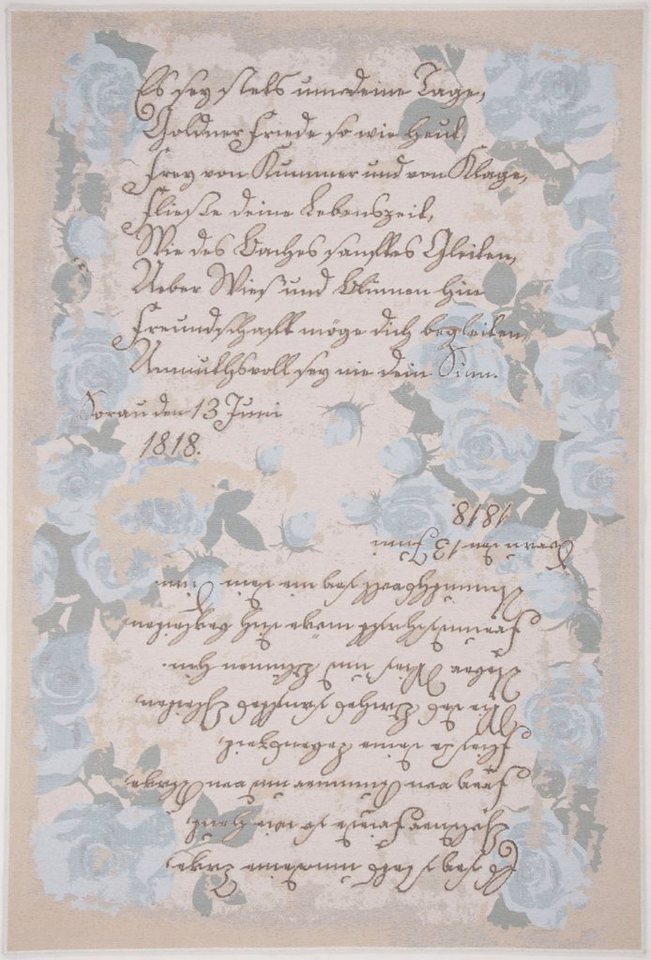 Es sey stets um deine Tage,
Goldner Friede so wie heut,
Frey von Kummer und von Klage,
Fließe deine Lebenszeit,
Wie des Baches sanftes Gleiten,
Ueber Wies' und Blumen hin
Freundschaft möge dich begleiten,
Anmuthsvoll sey nie dein Sinn.
Sorau den 13 Juni
1818.
1818.
Sorau den 13 Juni
Anmuthsvoll sey nie dein Sinn.
Freundschaft möge dich begleiten
Ueber Wies' und Blumen hin.
Wie des Baches sanftes Gleiten
Fließe deine Lebenszeit
Frey von Kummer und von Klage
Goldner Friede so wie heut
Es sey stets um deine Tage